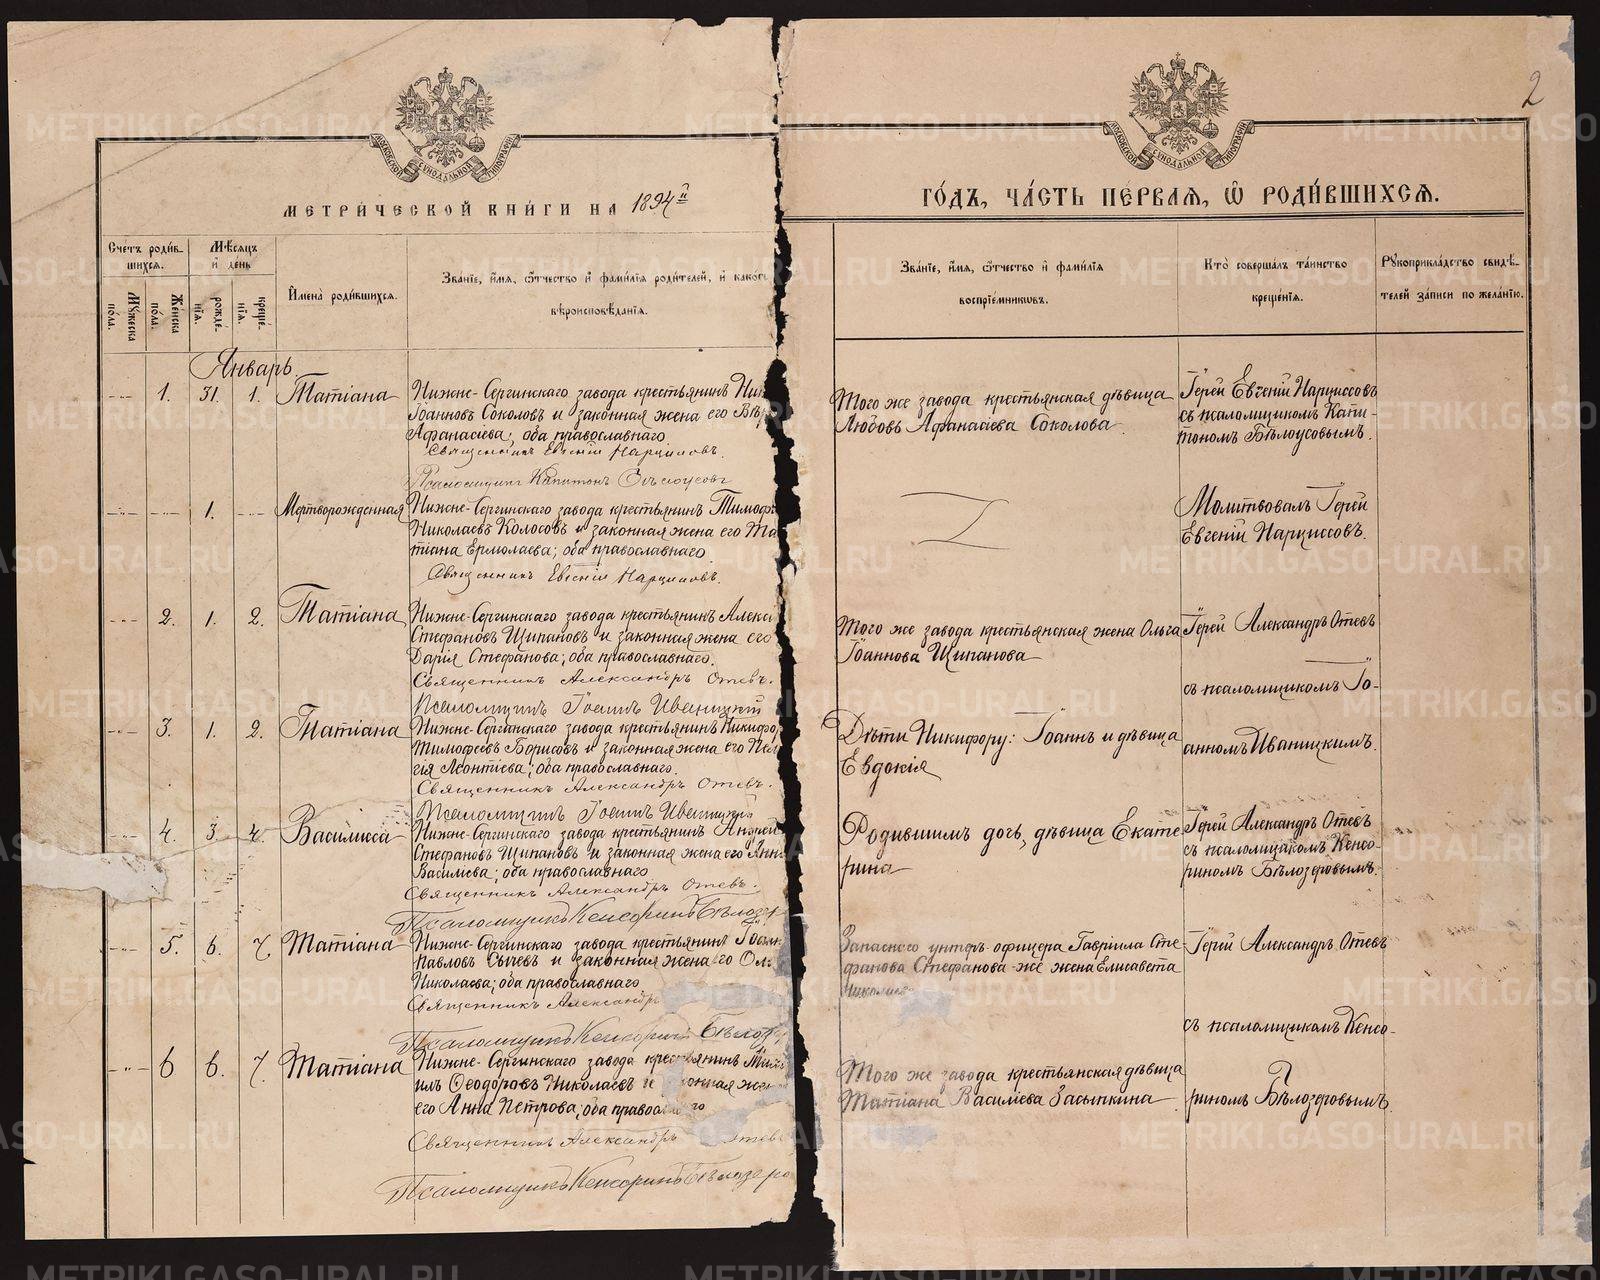 2
МОСКОВСКОЙ СѴНОДАЛЬНОЙ ТИПОГРАФІИ
МОСКОВСКОЙ СѴНОДАЛЬНОЙ ТИПОГРАФІИ
МЕТРИ́ЧЕСКОЙ КНИ́ГИ НА 1894й
ГО́ДЪ, ЧА́СТЬ ПЕ́РВАЯ, Ѡ҆ РОДИ́ВШИХСЯ.
Сче́тъ роди́в-
шихся.
Му́жеска
по́ла.
Же́нска
по́ла.
Мѣ́сяцъ
и҆ де́нь
рожде́-
нїя.
креще́-
нїя.
И҆мена̀ роди́вшихся.
Зва́нїе, и҆́мя, ѻ҆́тчество и҆ фами́лїя роди́телей, и҆ како́гѡ
вѣроисповѣ́данїя.
Зва́нїе, и҆́мя, ѻ҆́тчество и҆ фами́лїя
воспрїе́мниковъ.
Кто̀ соверша́лъ та́инство
креще́нїя.
Рꙋкоприкла́дство свидѣ́-
телей за́писи по жела́нїю.
Январь.
-"- 1. 31. 1. Татіана
Нижне-Сергинскаго завода крестьянинъ
Іоанновъ Соколовъ и законная жена его
Афанасіева, оба православнаго
Священникъ Евгеній Нарциссовъ.
Псаломщикъ Капитонъ Бѣлоусовъ
Того же завода крестьянская дѣвица
Любовь Афанасіева Соколова
Іерей Евгеній Нарциссовъ
съ псаломщикомъ Капи-
тономъ Бѣлоусовымъ.
-"- -"- 1. -"- Мертворожденная
Нижне-Сергинскаго завода крестьянинъ Тимоф
Николаевъ Колосовъ и законная жена его Та
тіана Ермолаева; оба православнаго
Священникъ Евгеній Нарциссовъ.
Молитвовалъ Іерей
Евгеній Нарциссовъ.
-"- 2. 1. 2. Татіана
Нижне-Сергинскаго завода крестьянинъ Алекс
Стефановъ Щипановъ и законная жена его
Дарія Стефанова; оба православнаго.
Священникъ Александръ Отевъ.
Псаломщикъ Іоаннъ Иваницкій
Того же завода крестьянская жена Ольга
Іоаннова Щипанова
Іерей Александръ Отевъ
съ псаломщикомъ Іо-
-"- 3. 1. 2. Татіана
Нижне-Сергинскаго завода крестьянинъ Никифо
Тимофеевъ Борисовъ и законная жена его Пел
гія Леонтіева; оба православнаго.
Священникъ Александръ Отевъ.
Псаломщикъ Іоаннъ Иваницкій
Дѣти Никифору: Іоаннъ и дѣвица
Евдокія
анномъ Иваницкимъ.
-"- 4. 3. 4. Василисса
Нижне-Сергинскаго завода крестьянинъ Андрей
Стефановъ Щипановъ и законная жена его Анн
Василіева; оба православнаго
Священникъ Александръ Отевъ.
Псаломщикъ Кенсоринъ Бѣлозер
Родившимъ дочь, дѣвица Екате
рина
Іерей Александръ Отевъ
съ псаломщикомъ Кенсо-
риномъ Бѣлозеровымъ.
-"- 5. 6. 7. Татіана
Нижне-Сергинскаго завода крестьянинъ Іоанн
Павловъ Сычевъ и законная жена его Ол
Николаева; оба православнаго
Священникъ Александръ
Псаломщикъ Кенсоринъ Бѣлозер
Запаснаго унтеръ-офицера Гавріила Сте-
фанова Стефанова же жена Елисавета
Николаева
Іерей Александръ Отевъ
съ псаломщикомъ Кенсо-
-"- 6 6. 7. Татіана
Нижне-Сергинскаго завода крестьянинъ
Ѳеодоровъ Николаевъ и законная жена
его Анна Петрова; оба православнаго
Священникъ Александръ Отевъ
Псаломщикъ Кенсоринъ Бѣлозеро
Того же завода крестьянская дѣвица
Татіана Василіева Засыпкина
риномъ Бѣлозеровымъ.
METRIKI.GASO-URAL.RU